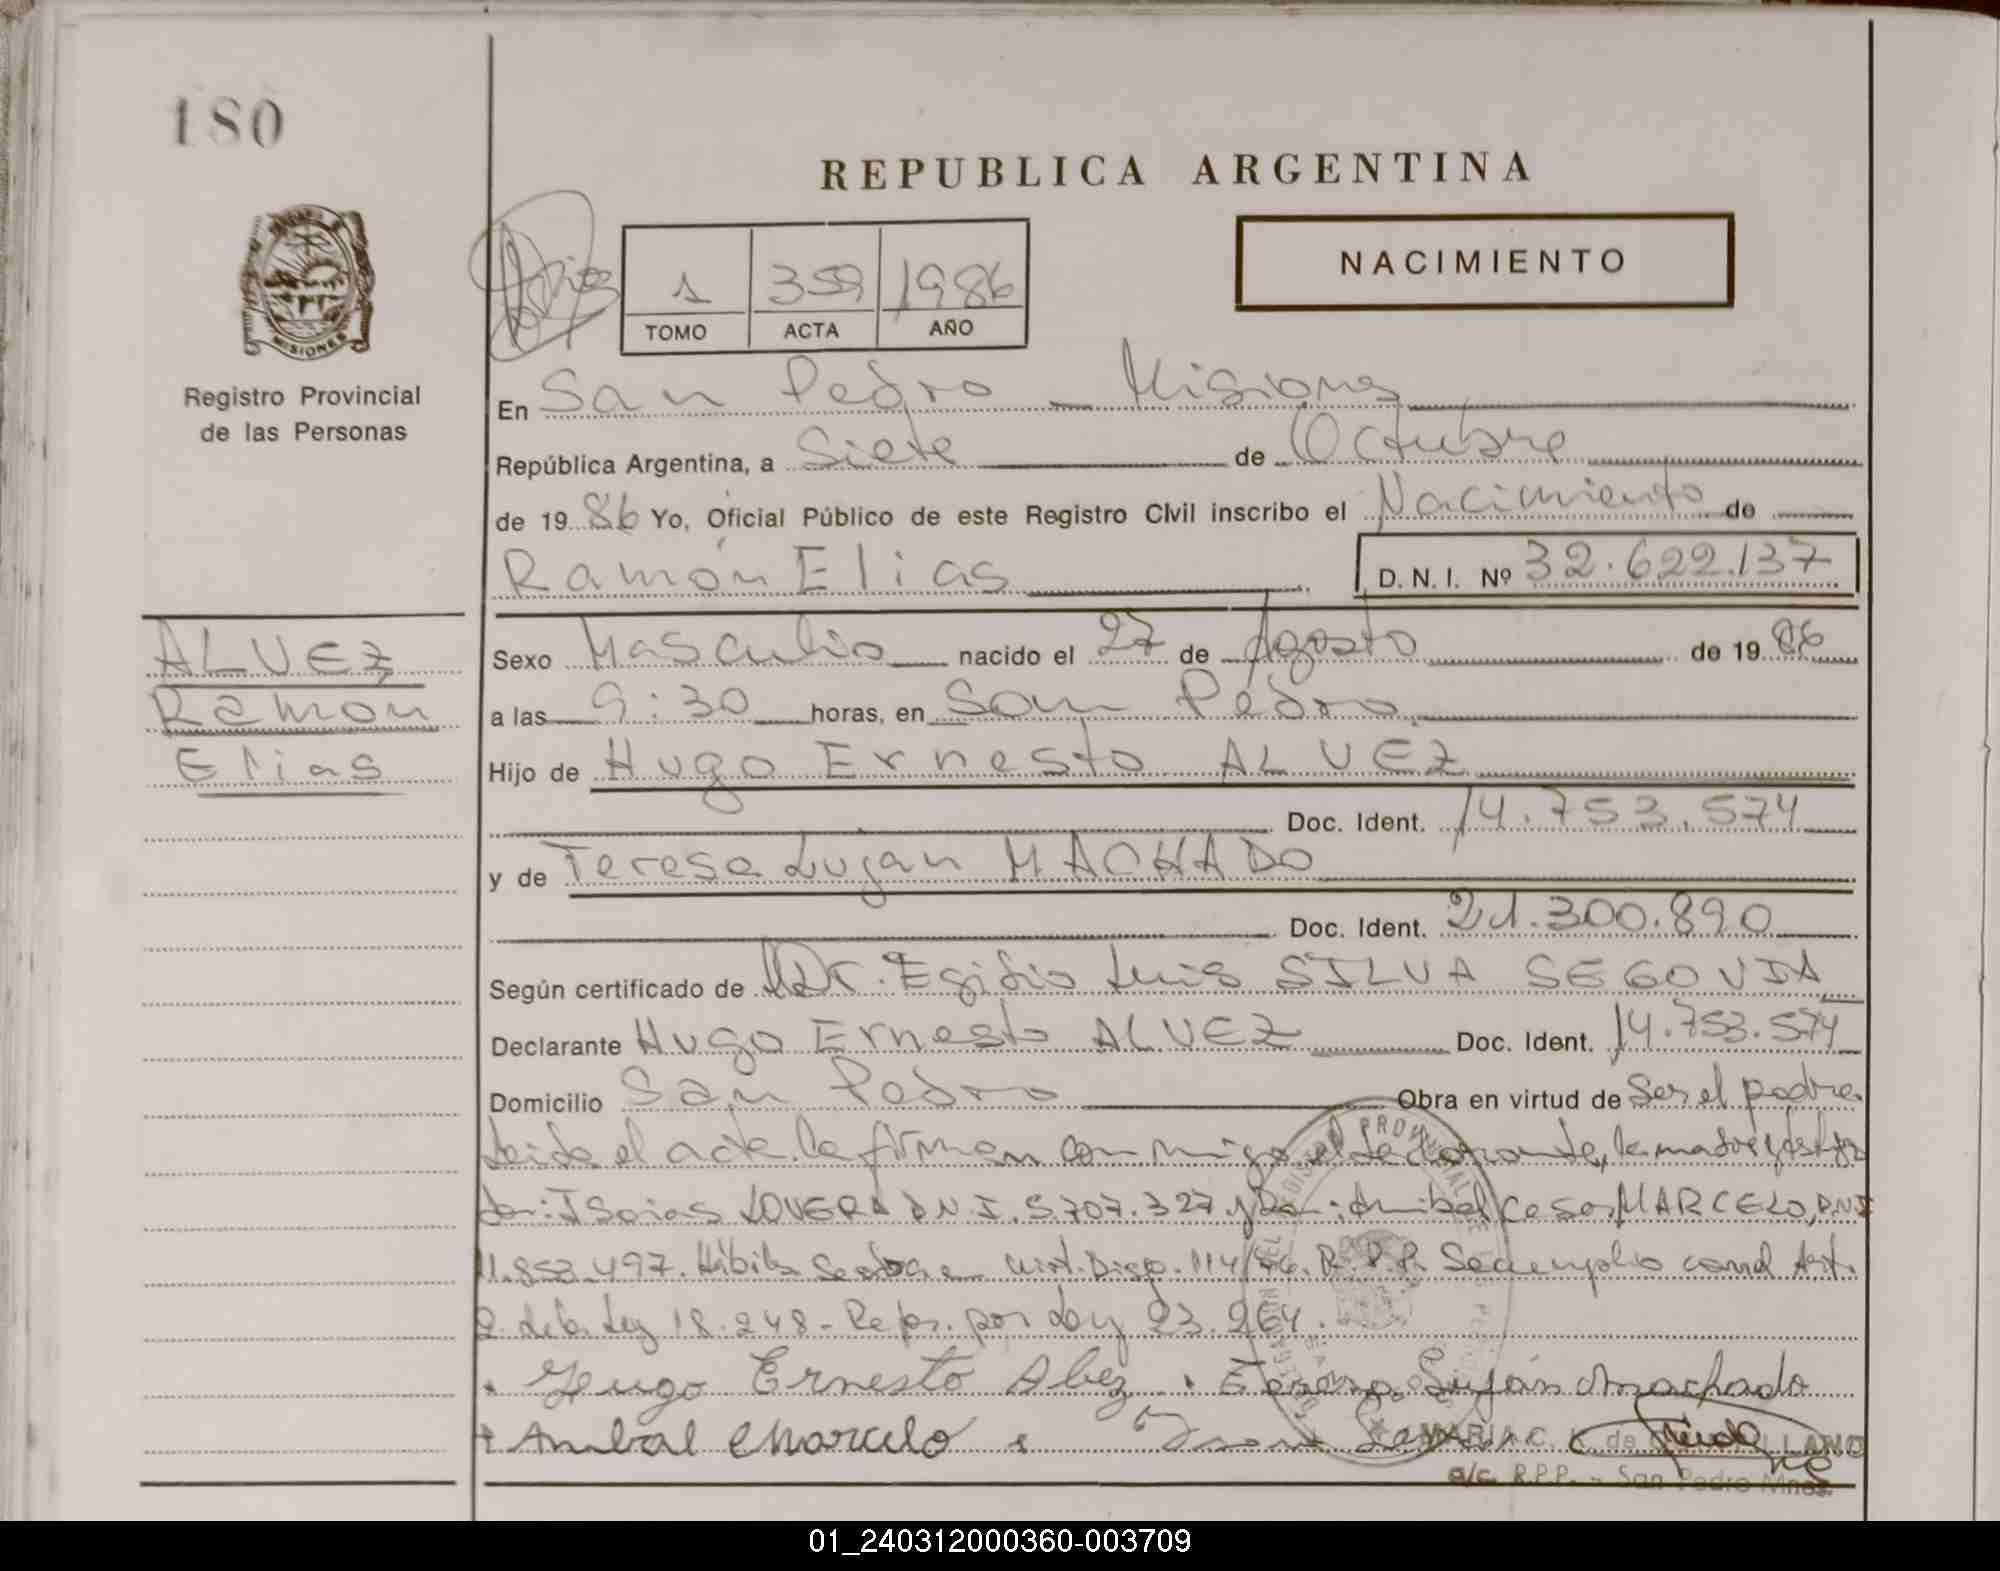 180
REPUBLICA ARGENTINA
NACIMIENTO
1 359 1986
TOMO ACTA AÑO
MISIONES
Registro Provincial
de las Personas
En San Pedro - Misiones
República Argentina, a Siete de Octubre
de 1986 Yo, Oficial Público de este Registro Civil inscribo el Nacimiento de
Ramón Elias D. N. I. Nº 32.622.137
ALVEZ
Ramon
Elias
Sexo Masculino nacido el 27 de Agosto de 1986
a las 9:30 horas, en San Pedro
Hijo de Hugo Ernesto ALVEZ
Doc. Ident. 14.753.574
y de Teresa Lujan MACHADO
Doc. Ident. 21.300.890
Según certificado de Dr. Egidio Luis SILVA SEGOVIA
Declarante Hugo Ernesto ALVEZ Doc. Ident. 14.753.574
Domicilio San Pedro Obra en virtud de Ser el padre.
Leida el acta la firman conmigo el declarante, la madre y testigo
don: Isaias LOVERA D.N.I. 5.707.327 y Don: Anibal MARCELO, D.N.I
11.853.497. Disp. 114/ R.P.P. Se cumplio con el Art.
2 de la Ley 18.248 - por Ley 23.264.
Hugo Ernesto Alvez Lujan Machado
Anibal Marcelo MARIA C. de
a/c. R.P.P. - San Pedro Mnes
01_240312000360-003709